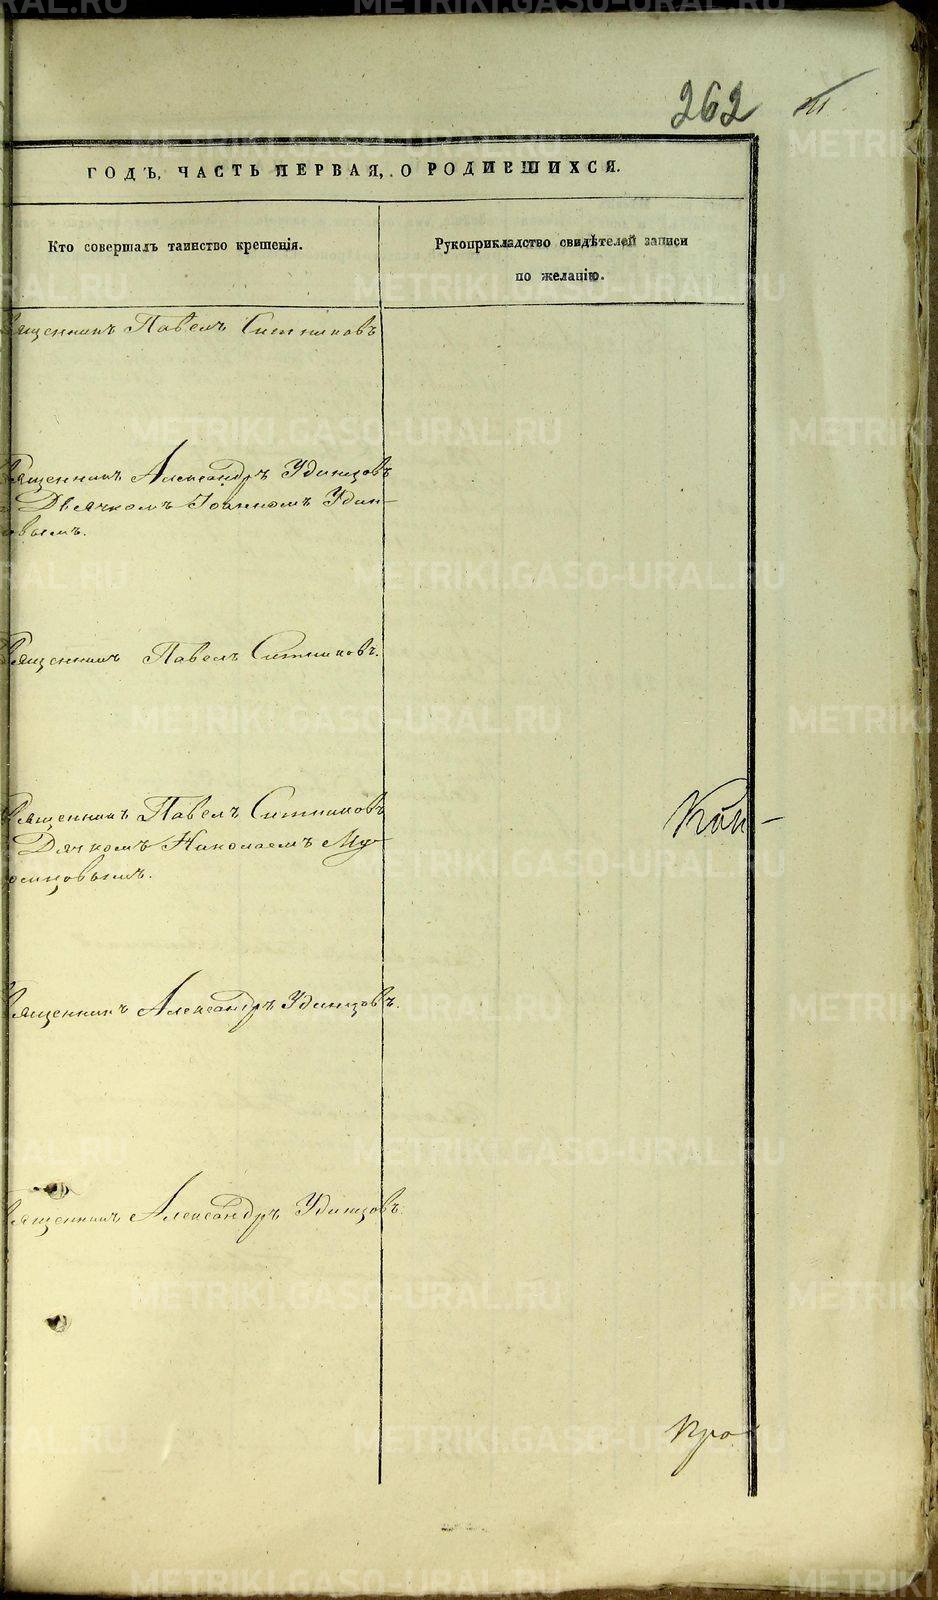 262
ГОДЪ, ЧАСТЬ ПЕРВАЯ, О РОДИВШИХСЯ.
Кто совершалъ таинство крещенія.
Рукоприкладство свидѣтелей записи
по желанію.
вященникъ Павелъ Ситниковъ
Священникъ Александръ Удинцовъ
Дьячкомъ Іоанномъ Удин-
овымъ.
Священникъ Павелъ Ситниковъ.
Священникъ Павелъ Ситниковъ
Дьячкомъ Николаемъ Му-
омцовымъ.
Священникъ Александръ Удинцовъ.
Священникъ Александръ Удинцовъ.
METRIKI.GASO-URAL.RU